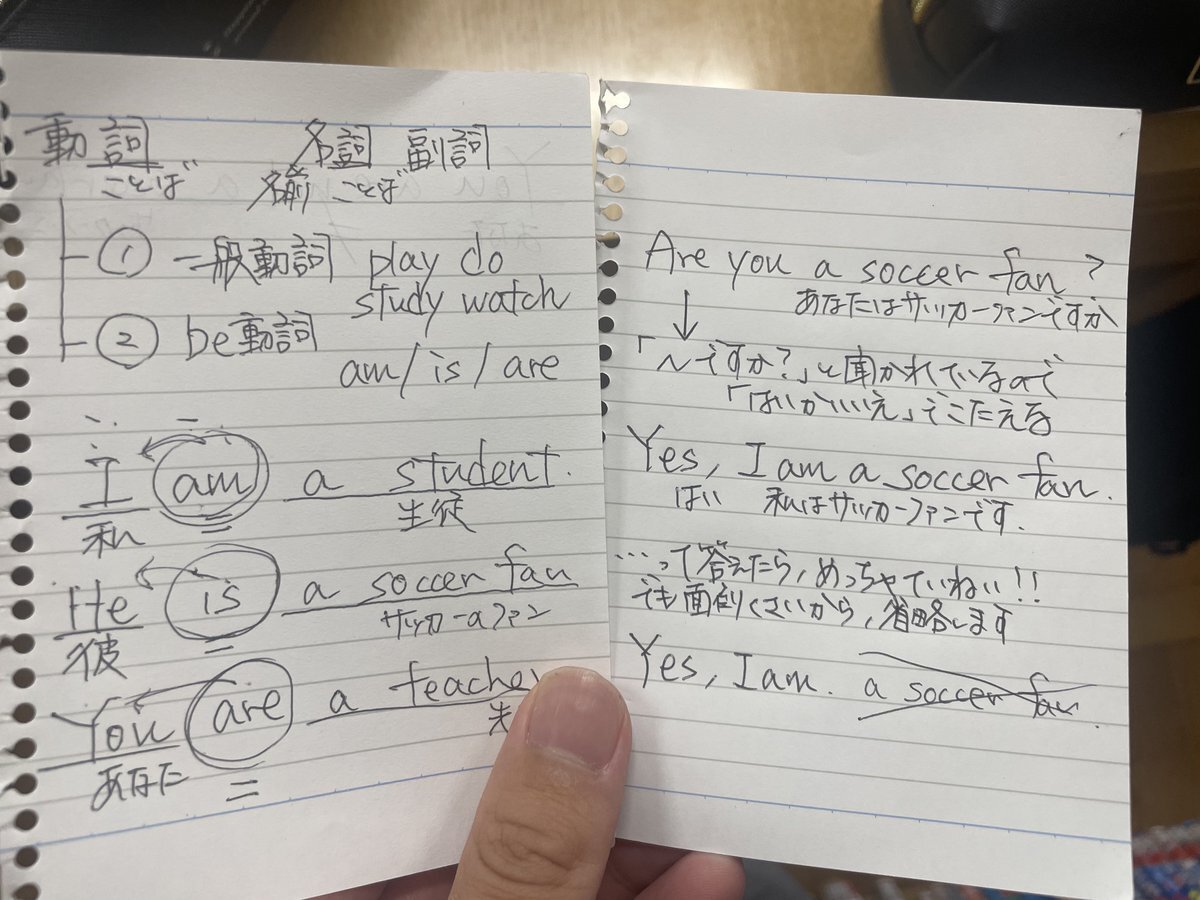 動詞 名詞 副詞
ことば 名前 ことば
① 一般動詞 play do
study watch
② be動詞
am/is/are
I am a student.
= 
私 生徒
He is a soccer fan
=
彼 サッカーのファン
You are a teacher
=
あなた
Are you a soccer fan?
あなたはサッカーファンですか
↓
「〜ですか?」と聞かれているので
「はいかいいえ」でこたえる
Yes, I am a soccer fan.
はい 私はサッカーファンです.
…って答えたら,めっちゃていねい!!
でも面倒くさいから,省略します
Yes, I am. a soccer fan.